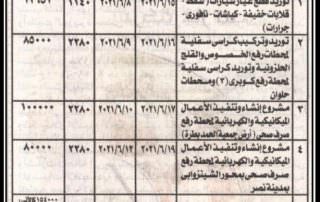 توريد قطع غيار سيارات (سقط
قلابات خفيفة - كباشات - نافورى
جرارات)
٢٠٢١/٦/١٥ ٢٠٢١/٦/٨ ١١٤٠
٢ توريد وتركيب كراسى سفلية
لمحطات رفع الخصوص والقلج
الحلزونية وتوريد كراسى سفلية
لمحطة رفع كوبرى (٢) ومحطات
حلوان
٢٠٢١/٦/١٦ ٢٠٢١/٦/٩ ٢٢٨٠ ٨٥٠٠٠
٣ مشروع إنشاء وتنفيذ الأعمال
الميكانيكية والكهربائية لمحطة رفع
صرف صحى (أرض جمعية أحمد بطرة)
٢٠٢١/٦/١٧ ٢٠٢١/٦/١٠ ٢٢٨٠ ١٠٠٠٠٠
٤ مشروع إنشاء وتنفيذ الأعمال
الميكانيكية والكهربائية لمحطة رفع
صرف صحى بمحور الشينزوابى
بمدينة نصر
٢٠٢١/٦/١٩ ٢٠٢١/٦/١٢ ٢٢٨٠ ٨٠٠٠٠